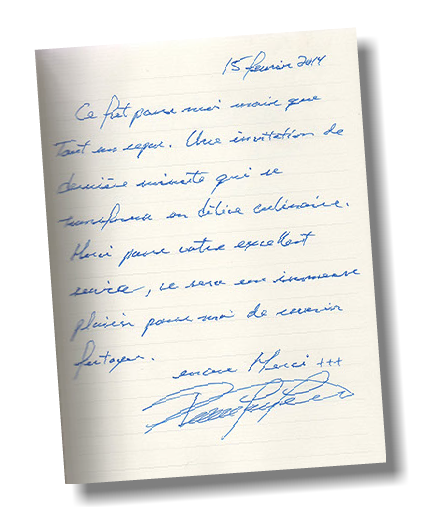 15 février 2014
Ce fut pour moi moins que
Tout un repas. Une invitation de
dernière minute qui se
transforme en délice culinaire.
Merci pour votre excellent
service, ce sera un immense
plaisir pour moi de revenir
festoyer.
encore Merci +++